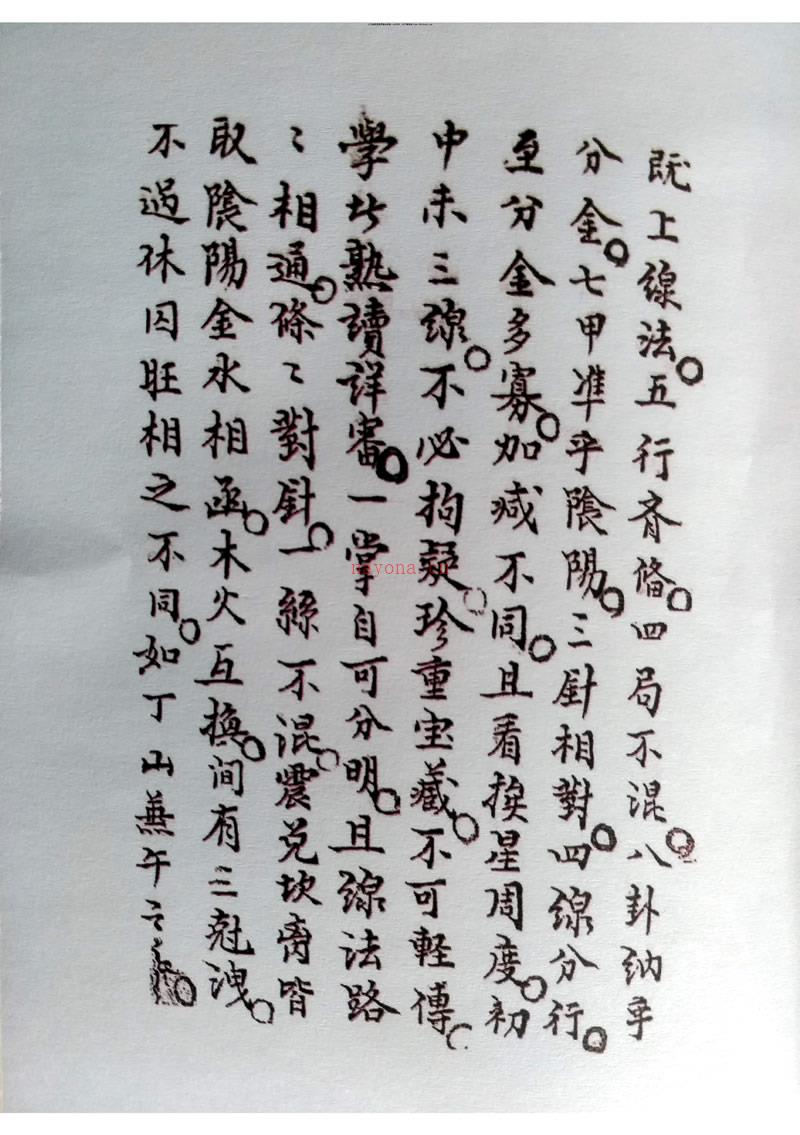 既上線法。五行齊備。四局不混。八卦納乎
分金。七甲準乎陰陽。三針相對。四線分行。
至分金多寡。加减不同。且看挨星周度。初
中末三線。不必拘疑。珍重宝藏。不可軽傳。
學此熟讀詳審。一掌自可分明。且線法路
〻相通。條〻對針。一絲不混。震兌坎离皆
取陰陽金水相函。木火互換。间有三尅洩。
不過休囚旺相之不同。如丁山兼午